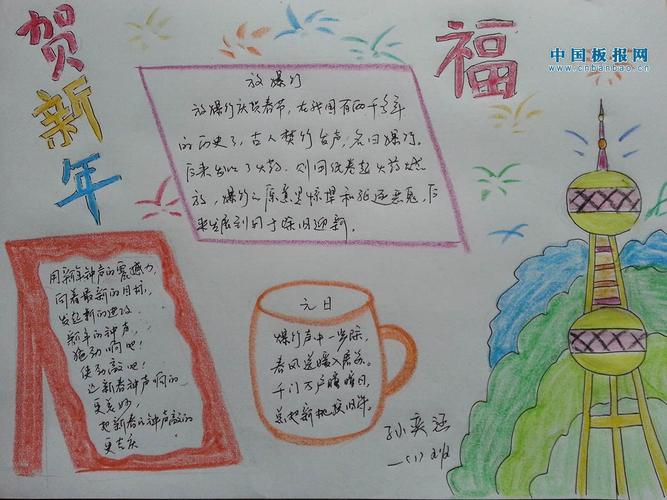 贺新年
福
中国板报网
www.cnbanbao.cn
放爆竹
放爆竹庆贺春节,在我国有两千多年
的历史了,古人焚竹台声,名曰爆竹。
后来出现了火药,则用纸卷起火药燃
放,爆竹之原意是惊惮和驱逐恶鬼,后
来发展到用于除旧迎新。
用新年钟声的震撼力,
向着最新的目标,
发起新的进攻
新年的钟声,
劲响吧!
使劲敲吧!
让新春钟声响的
更美妙,
把新春的钟声敲的
更吉庆
元日
爆竹声中一岁除,
春风送暖入屠苏。
千门万户曈曈日,
总把新桃换旧符。
孙奕涵
一(1)班